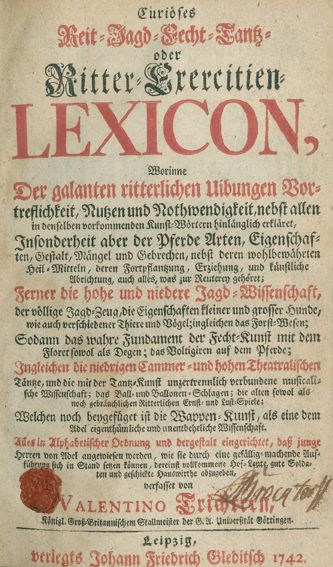 Curiöses
Reit-Jagd-Fecht-Tantz-
oder
Ritter-Exercitien-
LEXICON,
Worinne
Der galanten ritterlichen Uibungen Vor-
treflichkeit, Nutzen und Nothwendigkeit, nebst allen
in denselben vorkommenden Kunst-Wörtern hinlänglich erkläret,
Insonderheit aber der Pferde Arten, Eigenschaf-
ten, Gestalt, Mängel und Gebrechen, nebst deren wohlbewährten
Heil-Mitteln, deren Fortpflantzung, Erziehung, und künstliche
Abrichtung, auch alles, was zur Reuterey gehöret;
Ferner die hohe und niedere Jagd-Wissenschaft,
der völlige Jagd-Zeug, die Eigenschaften kleiner und grosser Hunde,
wie auch verschiedener Thiere und Vögel; ingleichen das Forst-Wesen;
Sodann das wahre Fundament der Fecht-Kunst mit dem
Floret sowol als Degen; das Voltigiren auf dem Pferde;
Ingleichen die niedrigen Cammer- und hohen Theatralischen
Täntze, und die mit der Tantz-Kunst unzertrennlich verbundene musicali-
sche Wissenschaft; das Ball- und Ballonen-Schlagen; die alten sowol als
noch gebräuchlichen Ritterlichen Ernst- und Lust-Spiele;
Welchen noch beygefüget ist die Wappen-Kunst, als eine dem
Adel eigenthümliche und unentbehrliche Wissenschaft.
Alles in Alphabetischer Ordnung und dergestalt eingerichtet, daß junge
Herren von Adel angewiesen werden, wie sie durch eine gefällig-machende Auf-
führung sich in Stand setzen können, dereinst vollkommene Hof-Leute, gute Solda-
ten und geschickte Hauswirthe abzugeben,
verfasset von
VALENTINO Trichtern,
Königl. Groß-Britannischem Stallmeister der G. A. Universität Göttingen.
Leipzig,
verlegts Johann Friedrich Gleditsch 1742.